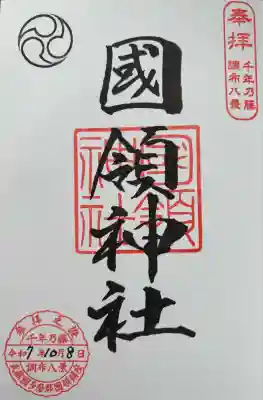 奉拝
千年乃藤
調布八景
國領神社
國領神社
参拝之証
千年乃藤
令和7年10月8日
調布八景